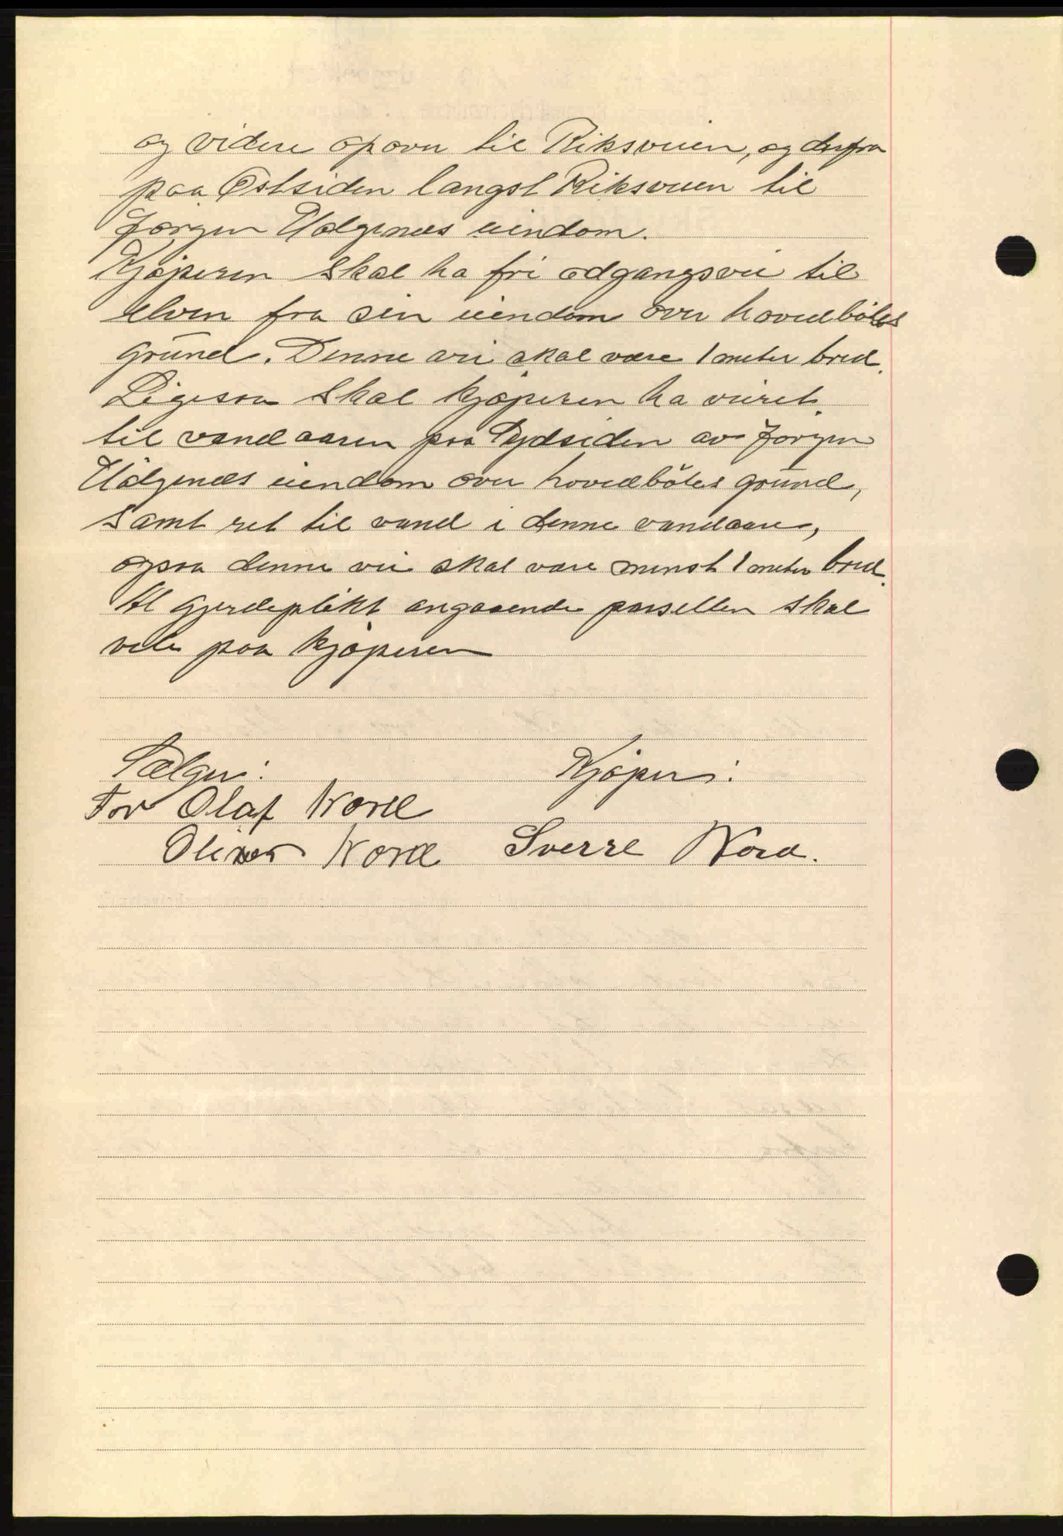 og videre opover til Riksveien, og derfra
paa Østsiden langst Riksveien til
Jørgen Halgenæs eiendom.
Kjøperen skal ha fri adgangsvei til
elven fra sin eiendom over hovedbølets
grund. Denne vei skal være 1 meter bred.
Ligesaa skal kjøperen ha veiret
til vandaaren paa Sydsiden av Jørgen
Halgenæs eiendom over hovedbølets grund,
samt ret til vand i denne vandaare,
ogsaa denne vei skal være minst 1 meter bred.
Al gjerdeplikt angaaende parsellen skal
vile paa kjøperen
Sælger: Kjøper:
For Olaf Nord
Nord Sverre Nord.